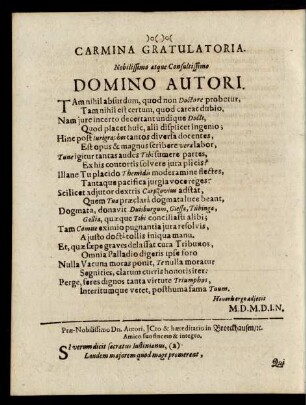 )o(.)o(
CARMINA GRATULATORIA.
Nobilissimo atque Consultissimo
DOMINO AUTORI.
TAm nihil absurdum, quod non Doctore probetur,
Tam nihil est certum, quod careat dubio,
Nam jure incerto decertant undique Docti,
Quod placet huic, alii displicet ingenio;
Hinc post tantos diversa docentes,
Est opus & magnus scribere vera labor,
Tune igitur tantas audes Tibi sumere partes,
Ex his contortis solvere jura plicis?
Illane Tu placido Themidis moderamine flectes,
Tantaque pacifica jurgia voce reges?
Scilicet adjutor dextris adstat,
Quem Tua præclarâ dogmata luce beant,
Dogmata, donavit Duisburgum, Giessa, Tubinga,
Gallia, quæque Tibi conciliasti alibi;
Tam Comue eximio pugnantia jura resolvis,
A justo docti tollis iniqua manu,
Et, quæ sæpe graves delassat cura Tribunos,
Omnia Palladio digeris ipse foro
Nulla Vacuna moras ponit, Te nulla moratur
Segnities, clarum curris honoris iter:
Perge, feres dignos tanta virtute Triumphos,
Interitumque vetet, posthuma fama Tuum.
M.D.M.D.I.N.
Præ-Nobilissimo Dn. Autori, JCto & hæreditario in Broeckhausen/rc.
Amico suo sincero & integro.
SI verum dicit sacratus Justinianus, (a)
Laudem majorem quod mage promereat,
Qui